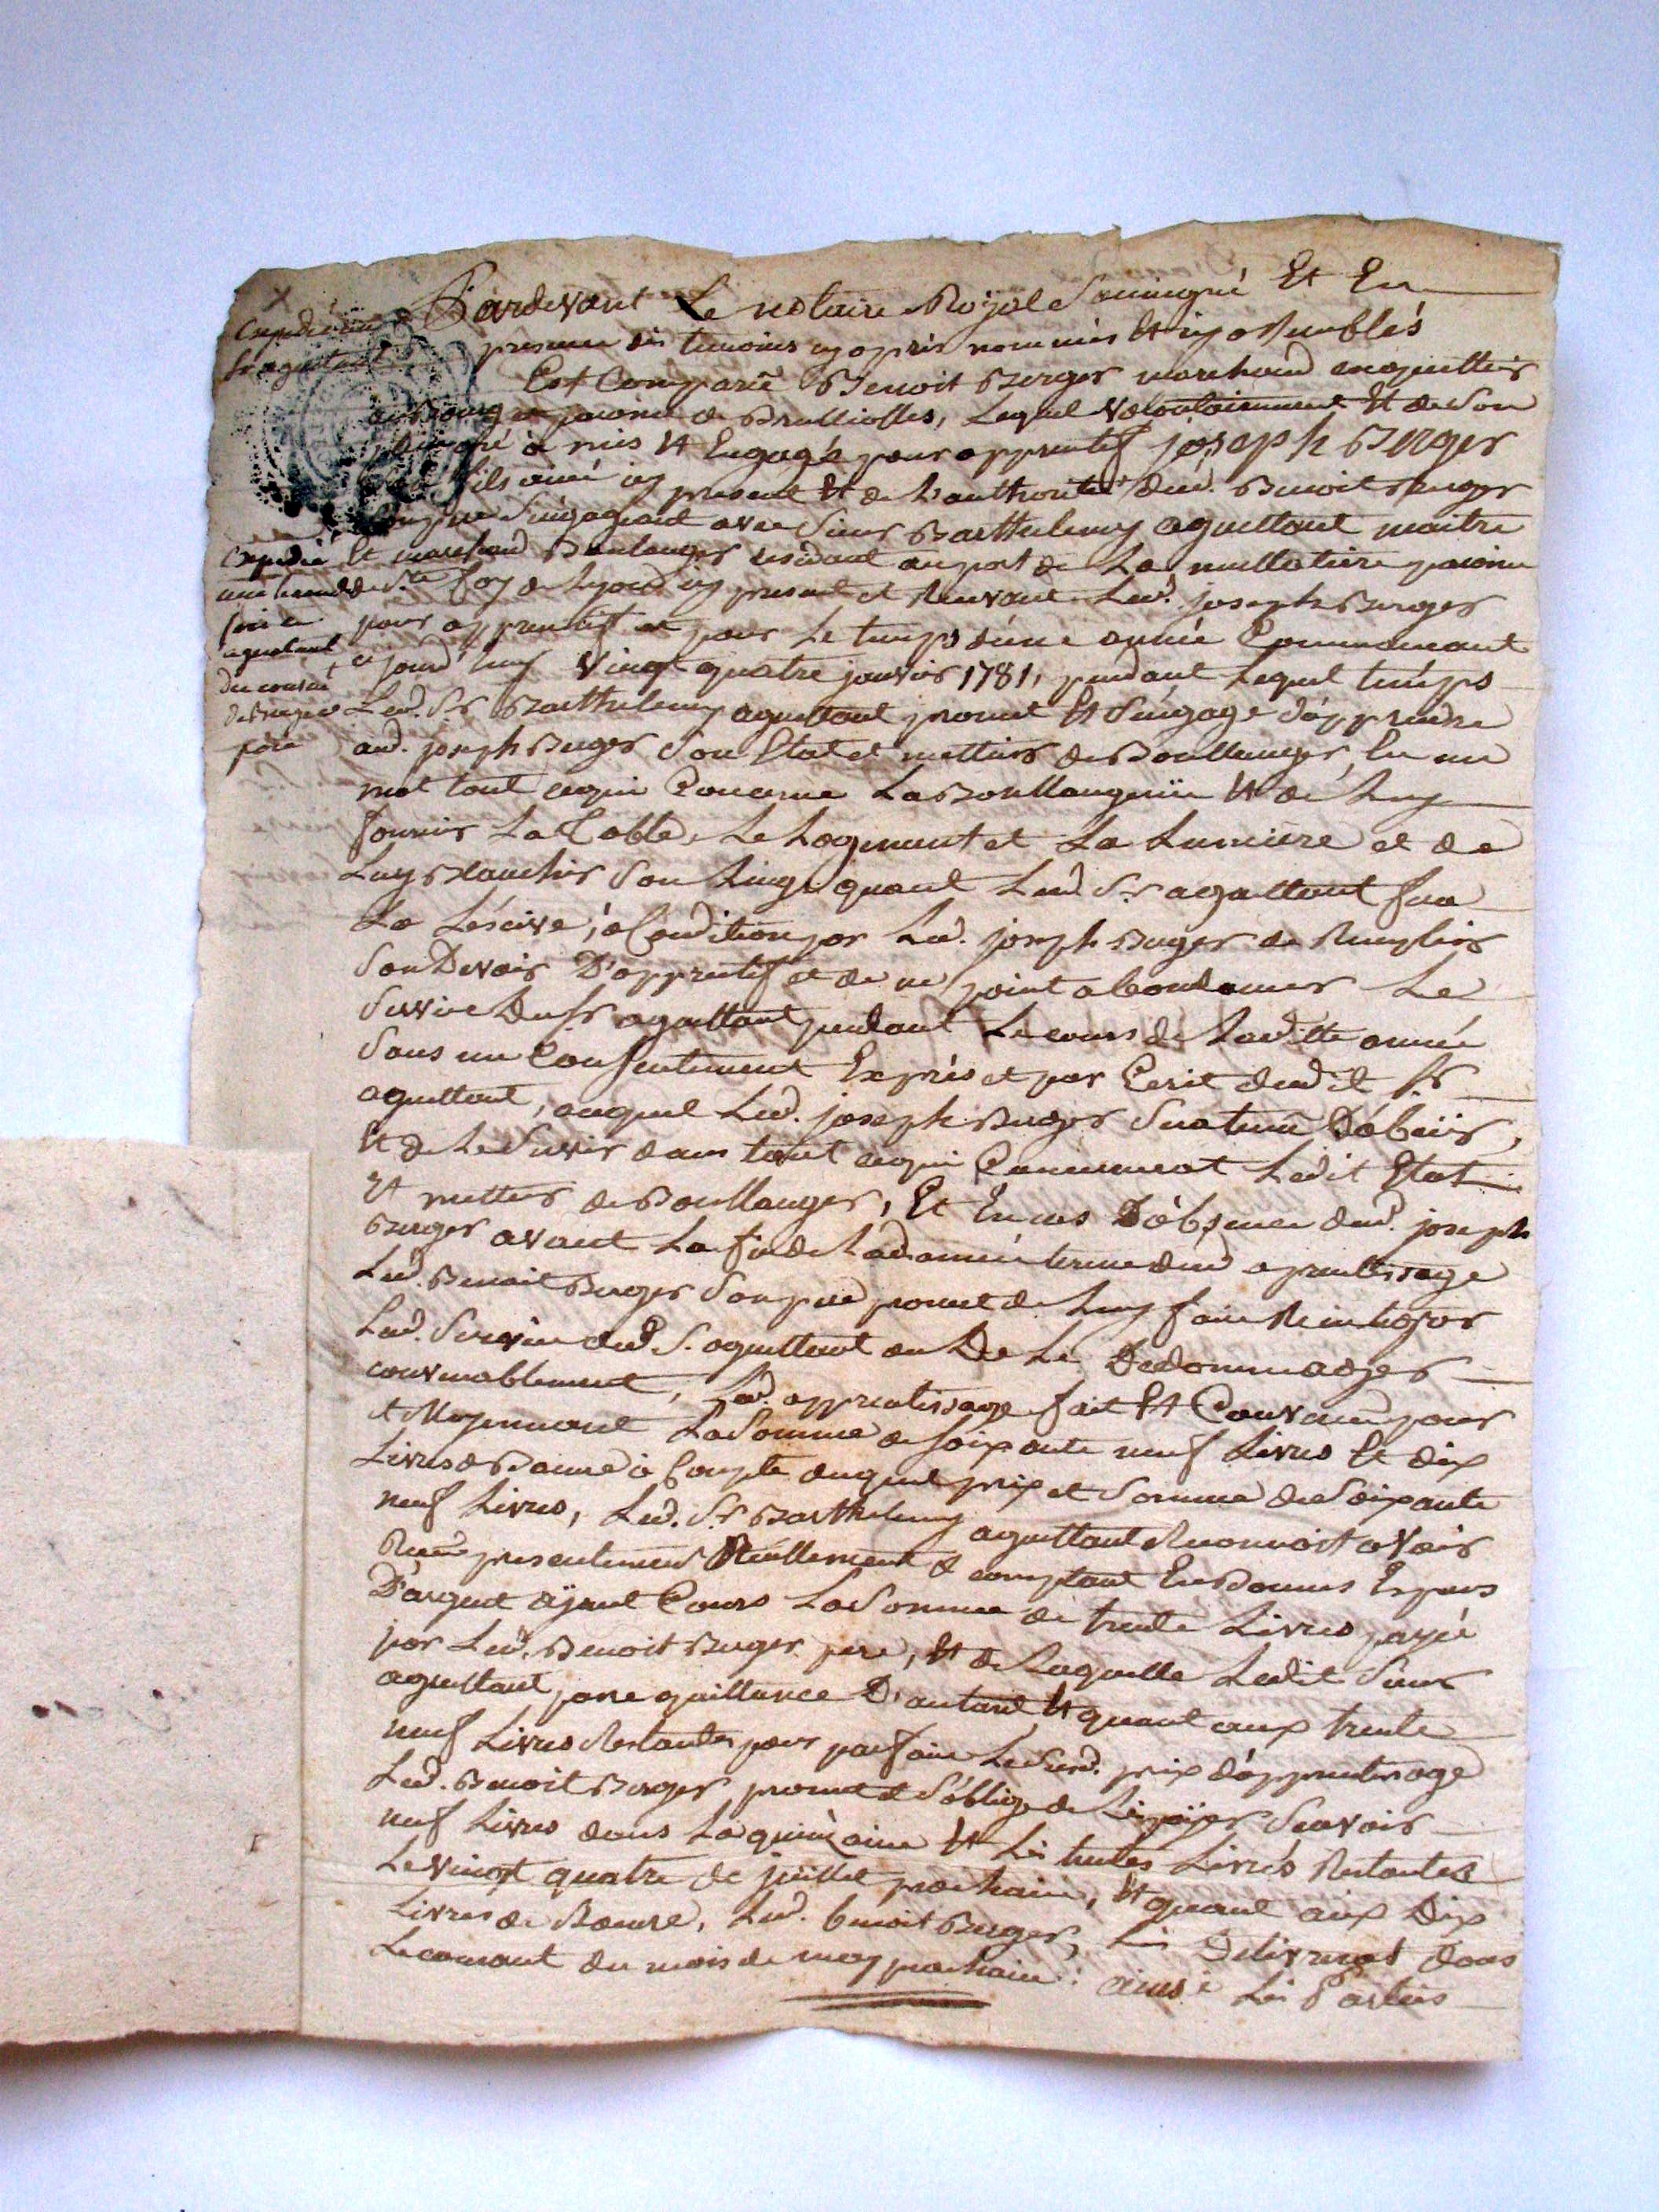 Expedié un
Sr aguettant
Expedié
une seconde
fois a
aguettant
du consent.
de Berger
père
Pardevant Le notaire Royal Soussigné Et En
presence des temoins cy apris nommés Et icy assemblés
Est Comparu Benoit Berger marchand coquettier
au Bourg et paroisse de Brullioles, Lequel volontairement Et de Son
plein gré à mis Et Engagé pour apprentif joseph Berger
Son fils ainé icy present Et de L'authorité dud. Benoit Berger
Son pere S'engageant avec Sieur Barthelemy aguettant maitre
Et marchand Boulanger residant au port de La mullatiere paroisse
de Ste foy Les Lyon icy present et Recevant Led. joseph Berger
pour apprentif et pour Le temps d'une année Commencant
ce jourd'huy Vingt quatre janvier 1781, pendant Lequel temps
Led. Sr Barthelemy aguettant promet Et S'engage d'apprendre
aud. joseph Berger Son Etat et mettier de Boullanger, En un
mot tout cequi Concerne La Boullangerie Et de Luy
fournir La Table, Le Logement et La Lumiere et de
Luy Blanchir Son Linge quant Led Sr aguettant fera
La Lésive, à Condition par Led. joseph Berger de Remplir
Son Devoir D'apprentif et de ne point abandonner Le
Service du Sr aguettant pendant Le cours de Laditte année
Sans un Consentement Exprès et par Ecrit dudit Sr
aguettant, auquel Led. joseph Berger Sera tenu D'obeïr,
Et de Le Servir dans tout cequi Concernerat Ledit Etat
Et mettier de Boullanger, Et En cas D'absence dud. joseph
Berger avant La fin de Lad. année terme dud apprentissage
Led. Benoit Berger Son pere promet de Luy faire Reintegrer
Led. Service dud. S. aguettant ou De Le Dedommager
convenablement, Led. apprentissage fait Et Convenu pour
et Moyennant La Somme de Soixante neuf Livres Et dix
Livres de Beurre à Compte duquel prix et Somme de Soixante
neuf Livres, Led. Sr Barthelemy aguettant Reconnoit avoir
Recu presentement Reellement & comptant En Bonnes Especes
D'argent aÿant Cours La Somme de trente Livres payée
par Led. Benoit Berger pere, Et de Laquelle Ledit Sieur
aguettant passe quittance D'autant Et quant aux trente
neuf Livres Restantes pour parfaire Le Susd. prix d'apprentissage
Led. Benoit Berger promet et S'oblige de Les paÿer Scavoir
neuf Livres dans La quinzaine Et Les trentes Livres Restantes
Le vingt quatre de juillet prochain, Et quant aux Dix
Livres de Beurre, Led. benoit Berger, Les Delivrerat dans
Le courant du mois de may prochain: ainsi Les Parties